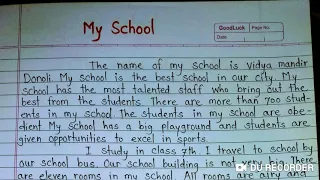 My School
GoodLuck
Page No.
Date
The name of my school is Vidya mandir
Donoli. My school is the best school in our city. My
school has the most talented staff who bring out the
best from the students. There are more than 700 stud-
ents in my school. The students in my school are obe-
dient. My school has a big playground and students are
given opportunities to excel in sports.
I study in class 7th. I travel to school by
our school bus. Our school building is not big. There
are eleven rooms in my school. All rooms are airy and
DU RECORDER